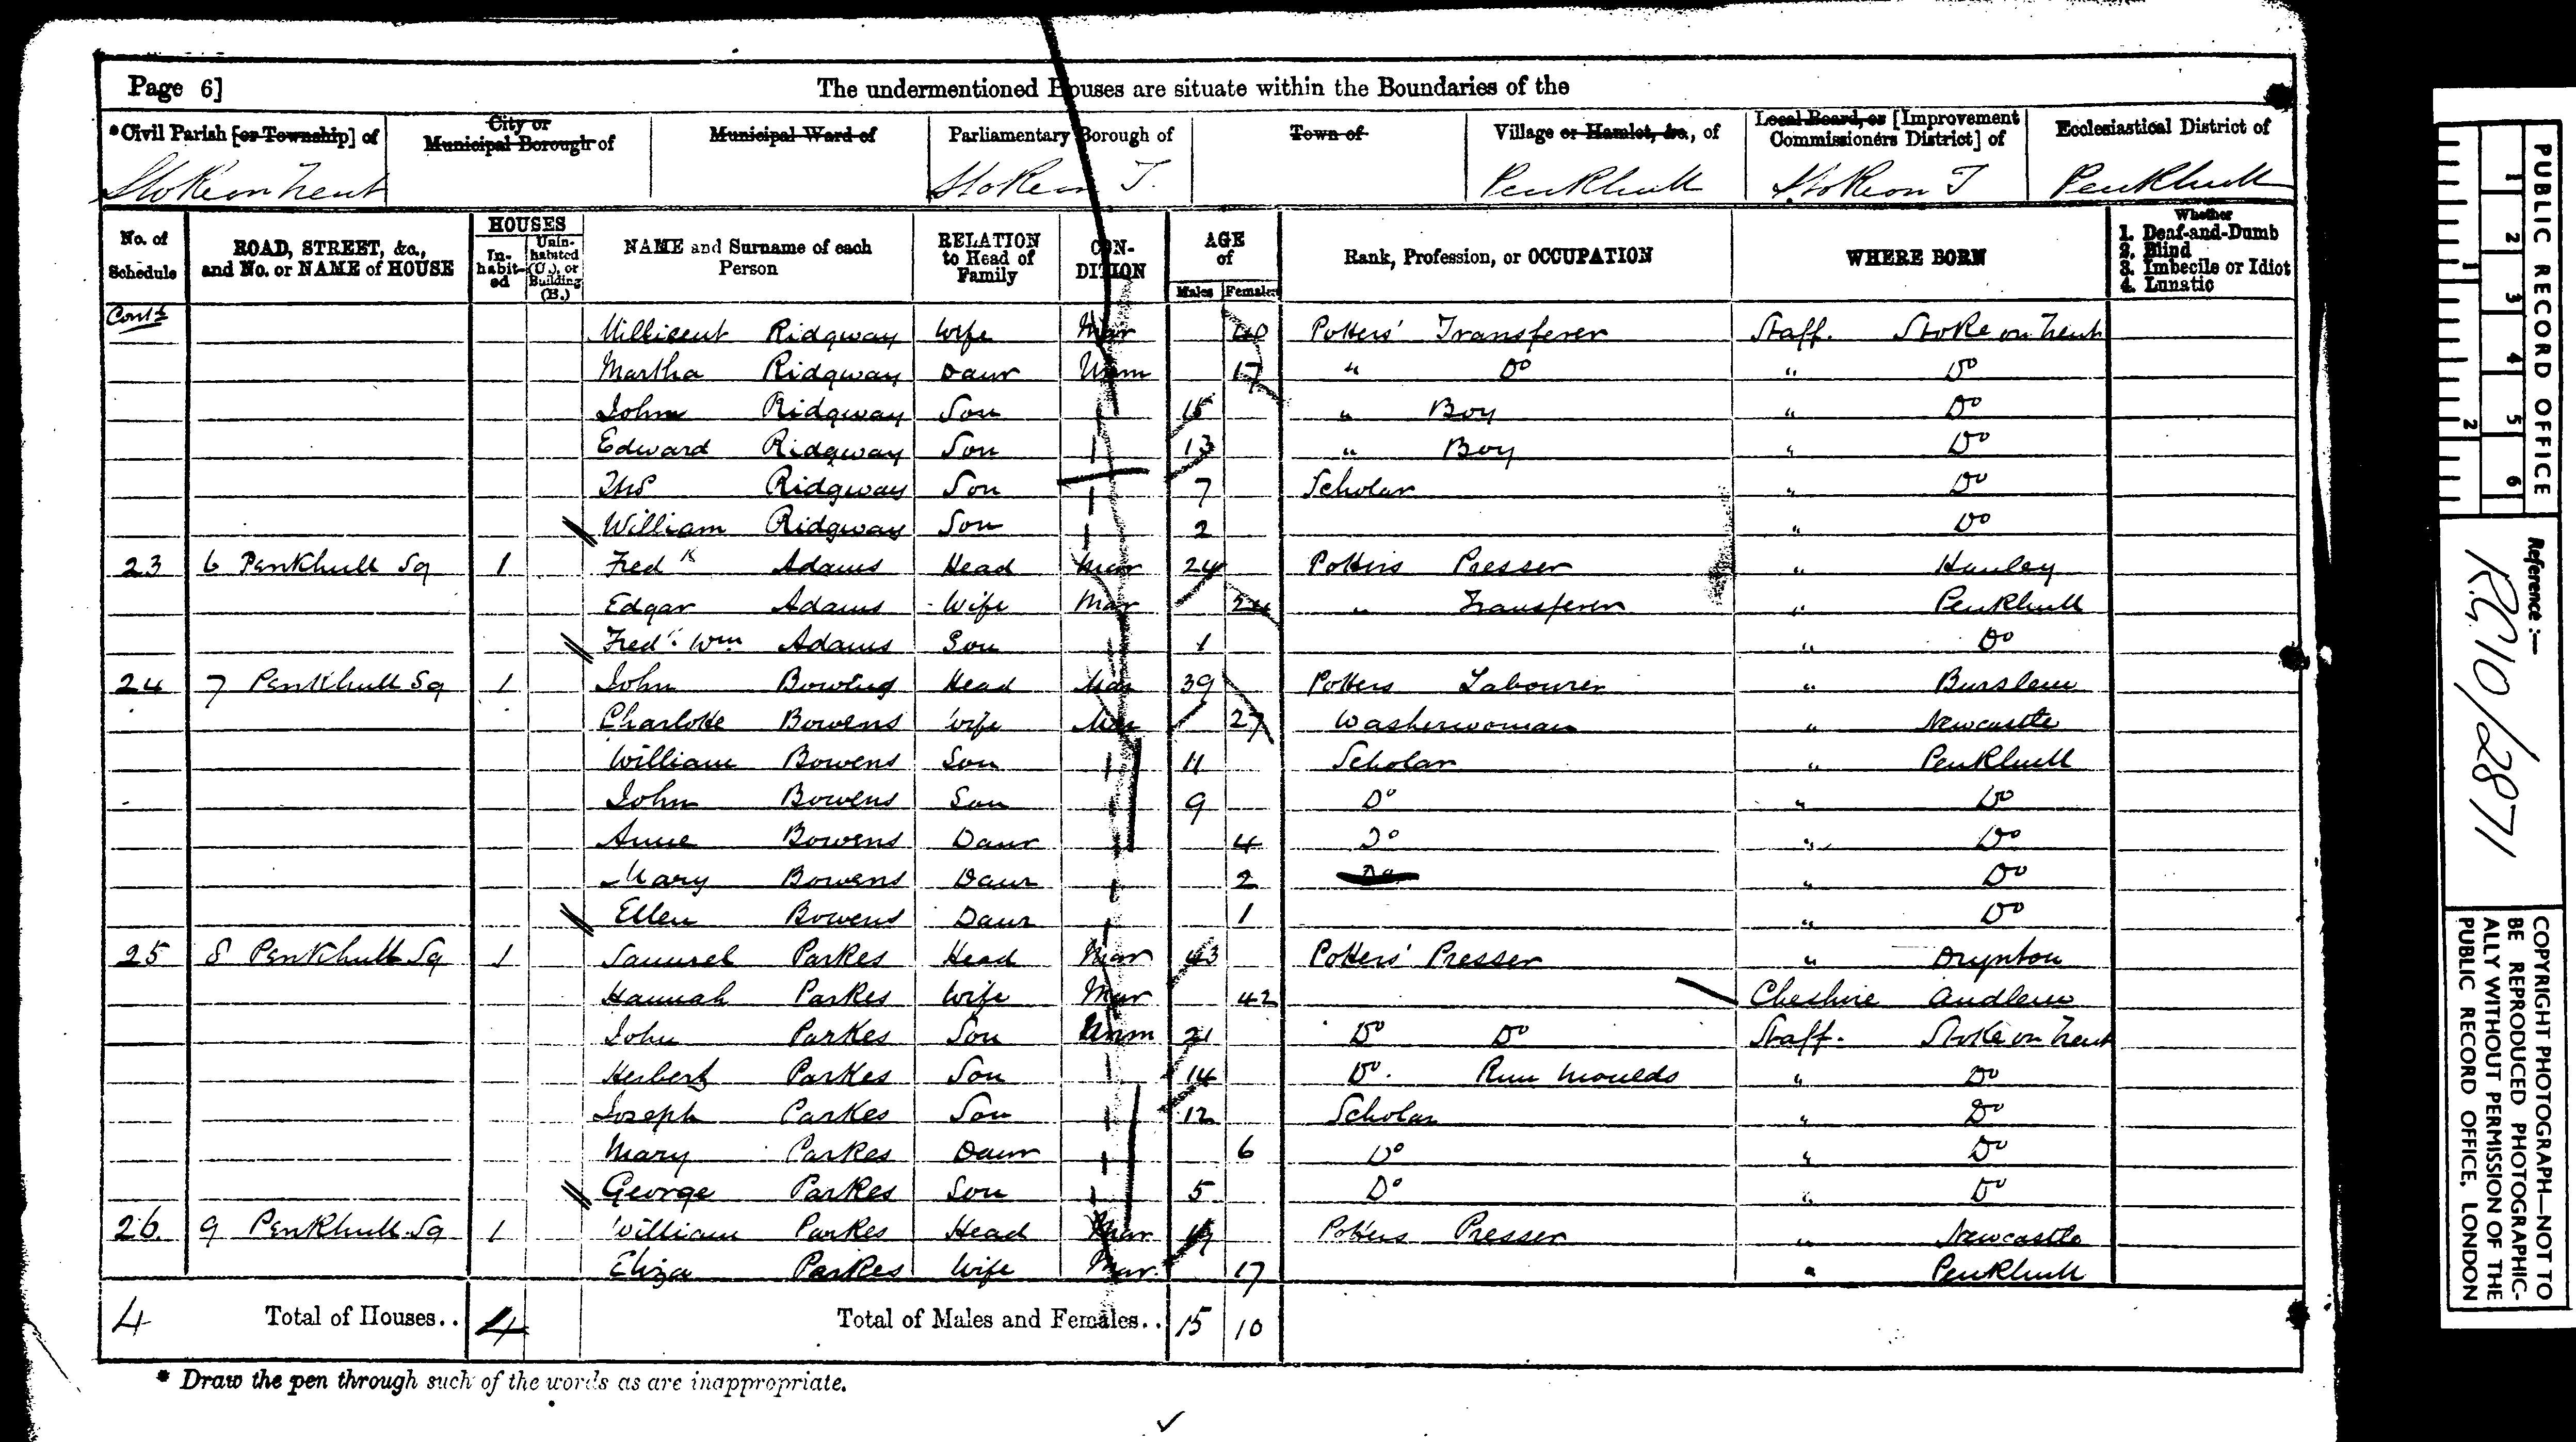 Page 6]
The undermentioned Houses are situate within the Boundaries of the
*Civil Parish [or Township] of
City or Municipal Borough of
Municipal Ward of
Parliamentary Borough of
Town of
Village or Hamlet, &c., of
Local Board, or [Improvement Commissioners District] of
Ecclesiastical District of
Stoke on Trent
Stoke on T.
Penkhull
Stoke on T
Penkhull
No. of Schedule
ROAD, STREET, &c., and No. or NAME of HOUSE
HOUSES
In-habit-ed
Unin-habited (U.), or Building (B.)
NAME and Surname of each Person
RELATION to Head of Family
CON-DITION
AGE of
Males
Females
Rank, Profession, or OCCUPATION
WHERE BORN
Whether
1. Deaf-and-Dumb
2. Blind
3. Imbecile or Idiot
4. Lunatic
Contd
Millicent Ridgway Wife Mar 40 Potters' Transferer Staff. Stoke on Trent
Martha Ridgway Daur Unm 17 " Do " Do
John Ridgway Son 15 " Boy " Do
Edward Ridgway Son 13 " Boy " Do
Thos Ridgway Son 7 Scholar " Do
William Ridgway Son 2 " Do
23 6 Penkhull Sq 1 Fredk Adams Head Mar 24 Potters Presser " Hanley
Edgar Adams Wife Mar 24 " Transferer " Penkhull
Fredk Wm Adams Son 1 " Do
24 7 Penkhull Sq 1 John Head Mar 39 Potters Labourer " Burslem
Charlotte Bowens Wife Mar 27 Washerwoman " Newcastle
William Bowens Son 11 Scholar " Penkhull
John Bowens Son 9 Do " Do
Anne Bowens Daur 4 Do " Do
Mary Bowens Daur 2 Do " Do
Ellen Bowens Daur 1 " Do
25 8 Penkhull Sq 1 Samuel Parkes Head Mar 43 Potters' Presser "
Hannah Parkes Wife Mar 42 Cheshire Audlem
John Parkes Son Unm 21 Do Do Staff. Stoke on Trent
Herbert Parkes Son 14 Do. Run Moulds " Do
Joseph Parkes Son 12 Scholar " Do
Mary Parkes Daur 6 Do " Do
George Parkes Son 5 Do " Do
26. 9 Penkhull Sq 1 William Parkes Head Mar 19 Potters Presser " Newcastle
Eliza Parkes Wife Mar. 17 " Penkhull
4 Total of Houses.. 4 Total of Males and Females.. 15 10
* Draw the pen through such of the words as are inappropriate.
PUBLIC RECORD OFFICE
1 2 3 4 5 6
1 2
Reference :—
RG 10/2871
COPYRIGHT PHOTOGRAPH—NOT TO
BE REPRODUCED PHOTOGRAPHIC-
ALLY WITHOUT PERMISSION OF THE
PUBLIC RECORD OFFICE, LONDON